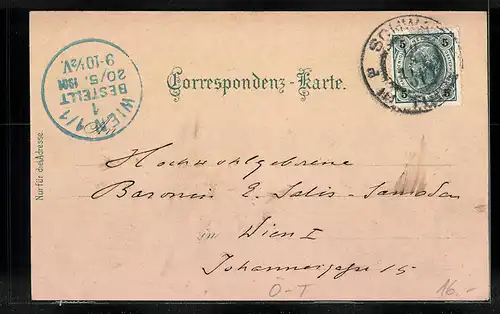 WIEN 1/1
1
BESTELLT
20/5. 1901
9-10½V.
Correspondenz-Karte.
5 5
Nur für die Adresse.
Hochwohlgeborene
Baronin E. Salis-Samaden
in Wien I
Johannesgasse 15
O-T
16.-